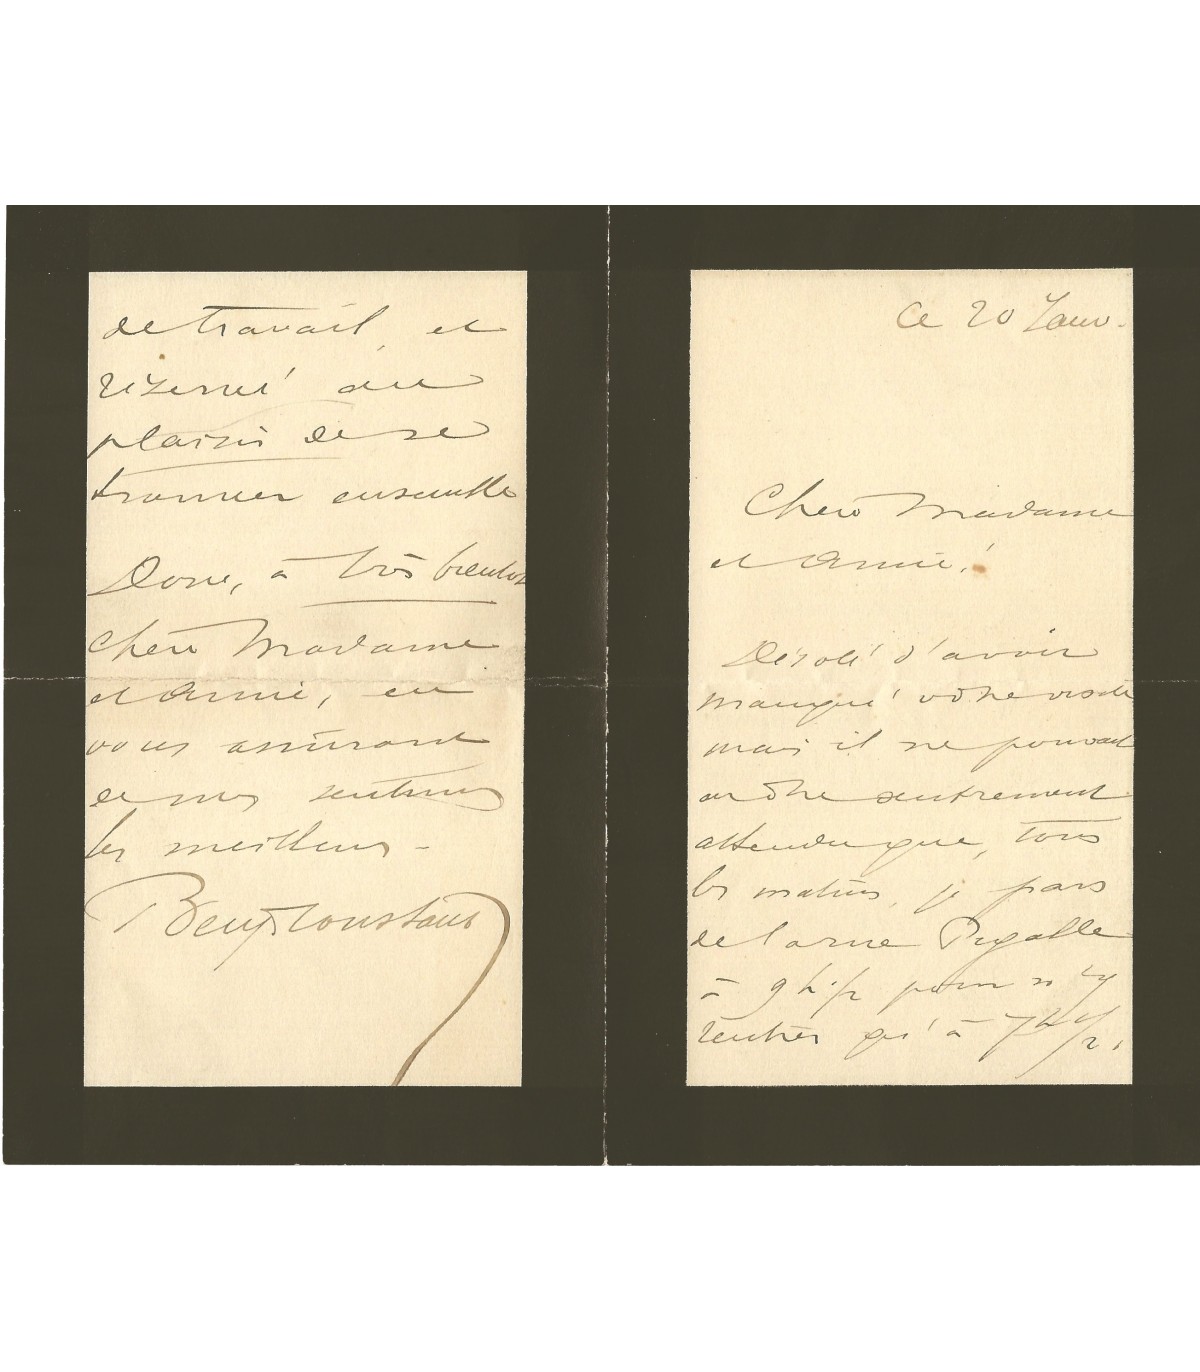 Ce 20 Janv.
Chère Madame
et Amie!
Désolé d'avoir
manqué votre visite
mais il ne pouvait
en être autrement
attendu que, tous
les matins, je pars
de la rue Pigalle
à 9 h. ½ pour n'y
rentrer qu'à 7 h ½.
de travail, et
réservé au
plaisir de se
trouver ensemble
Donc, à très bientôt
Chère Madame
et Amie, en
vous assurant
de mes sentiments
les meilleurs -
Benj Constant